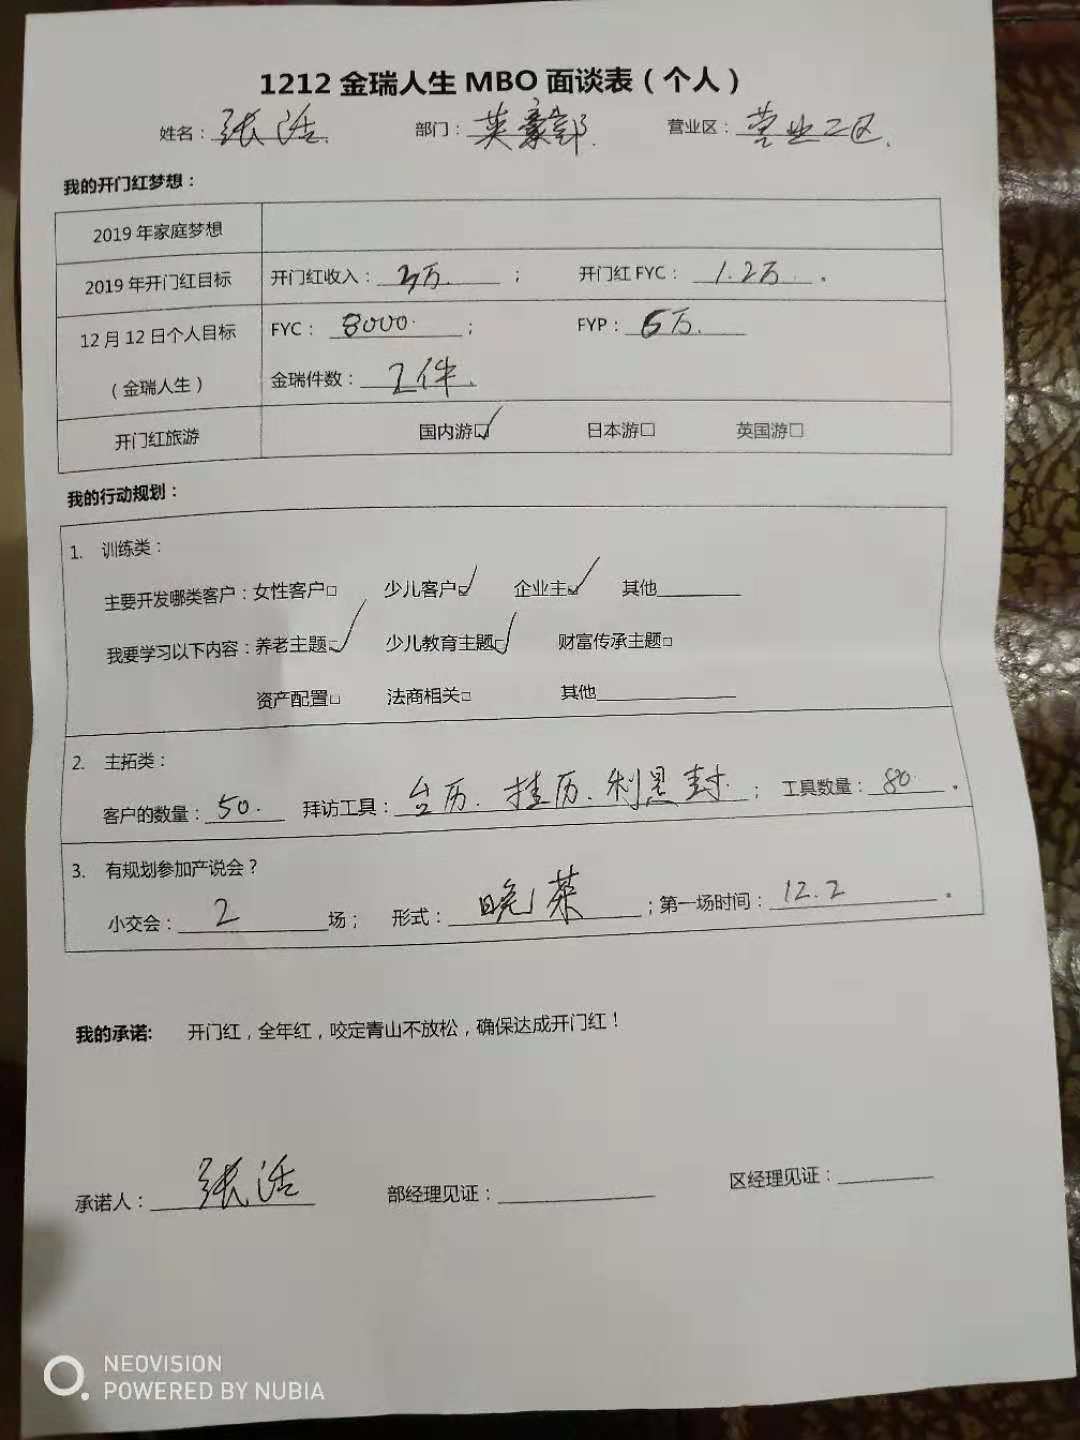 1212 金瑞人生 MBO 面谈表（个人）
姓名：张活. 部门：英豪部. 营业区：营业二区.
我的开门红梦想：
2019 年家庭梦想
2019 年开门红目标 开门红收入：3万. ； 开门红 FYC： 1.2万 。
12 月 12 日个人目标 FYC： 8000. ； FYP：6万.
（金瑞人生） 金瑞件数：2件.
开门红旅游 国内游☑ 日本游□ 英国游□
我的行动规划：
1. 训练类：
主要开发哪类客户：女性客户□ 少儿客户☑ 企业主☑ 其他
我要学习以下内容：养老主题☑ 少儿教育主题☑ 财富传承主题□
资产配置□ 法商相关□ 其他
2. 主拓类：
客户的数量：50. 拜访工具：台历.挂历.利是封. ； 工具数量：80. 。
3. 有规划参加产说会？
小交会：2 场； 形式： ；第一场时间：12.2 。
我的承诺: 开门红，全年红，咬定青山不放松，确保达成开门红！
承诺人：张活 部经理见证： 区经理见证：
NEOVISION
POWERED BY NUBIA